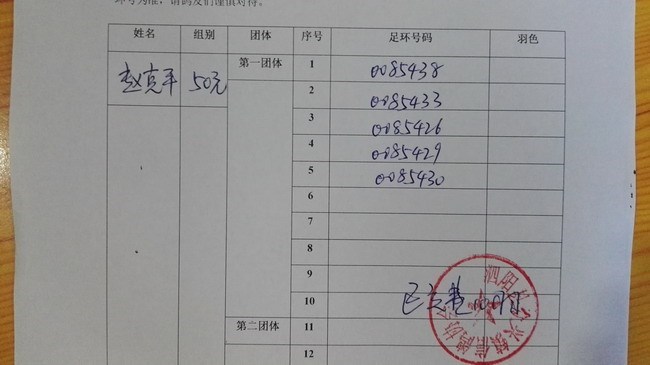 环号为准，请鸽友们谨慎对待。
姓名 组别 团体 序号 足环号码 羽色
赵克平 50元 第一团体 1 0085438
2 0085433
3 0085426
4 0085429
5 0085430
6
7
8
9
10
第二团体 11
12
泗阳 兴镇信鸽